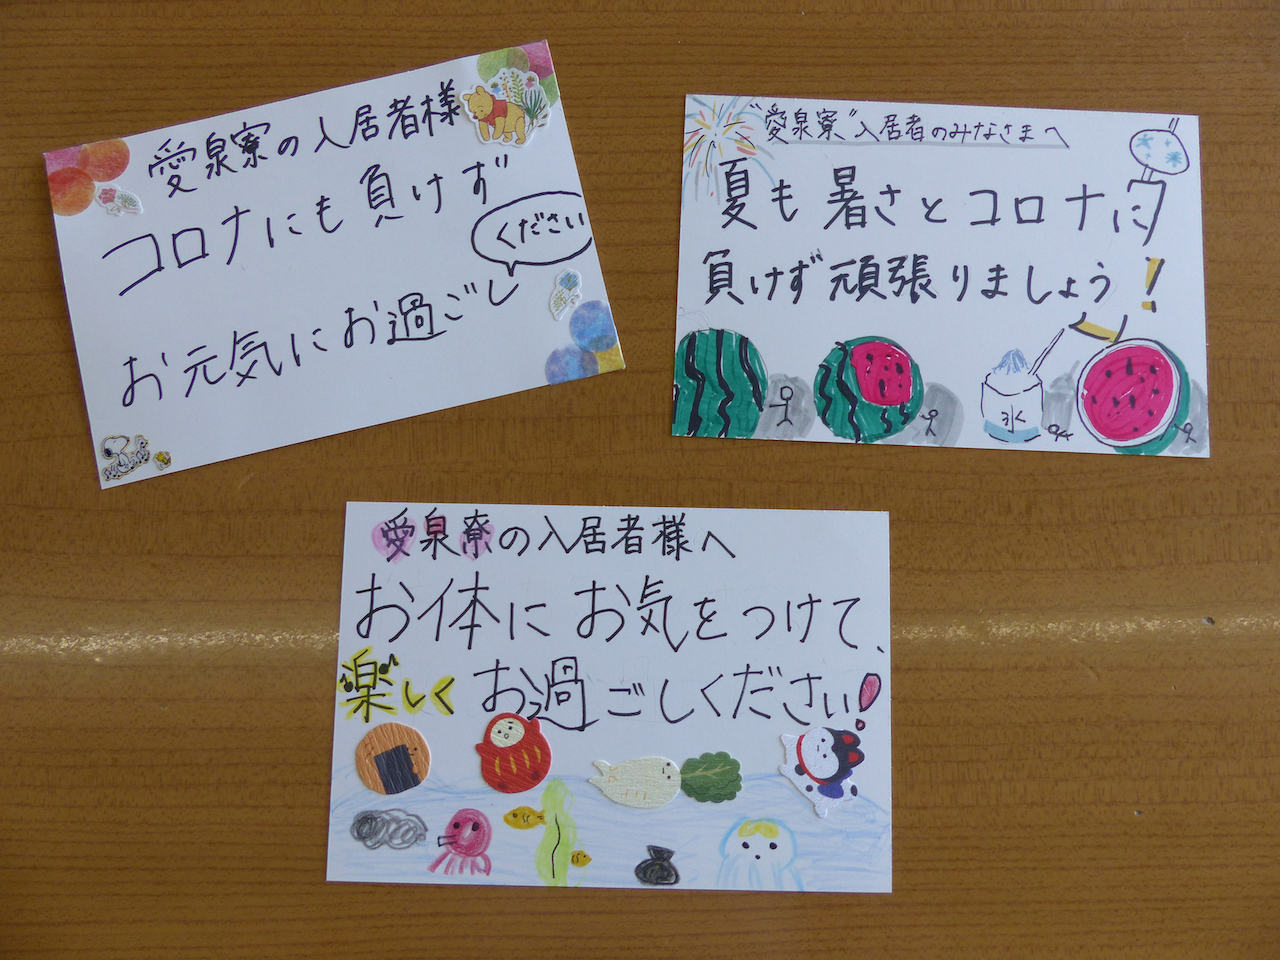 愛泉寮の入居者様
コロナにも負けず
お元気にお過ごし
ください
“愛泉寮”入居者のみなさまへ
夏も暑さとコロナに
負けず頑張りましょう!
氷
愛泉寮の入居者様へ
お体にお気をつけて、
楽しくお過ごしください!